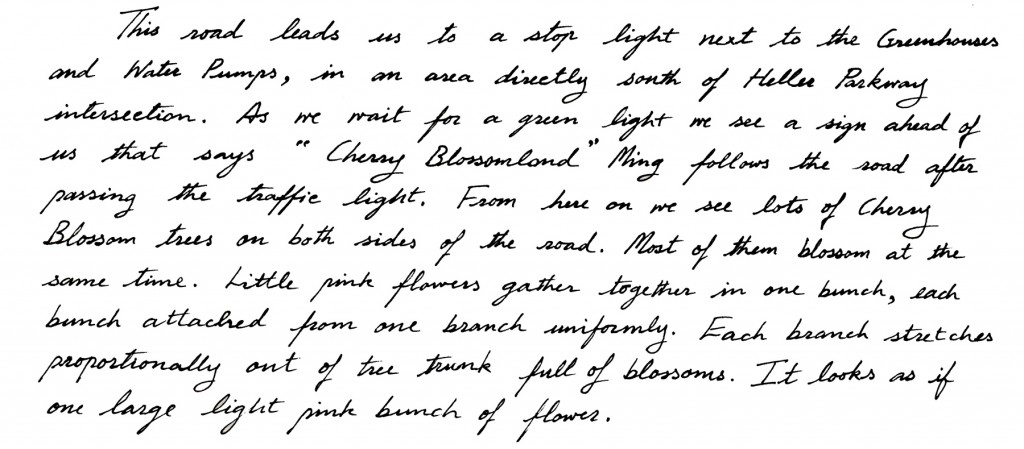 This road leads us to a stop light next to the Greenhouses
and Water Pumps, in an area directly south of Heller Parkway
intersection. As we wait for a green light we see a sign ahead of
us that says "Cherry Blossomland" Ming follows the road after
passing the traffic light. From here on we see lots of Cherry
Blossom trees on both sides of the road. Most of them blossom at the
same time. Little pink flowers gather together in one bunch, each
bunch attached from one branch uniformly. Each branch stretches
proportionally out of tree trunk full of blossoms. It looks as if
one large light pink bunch of flower.